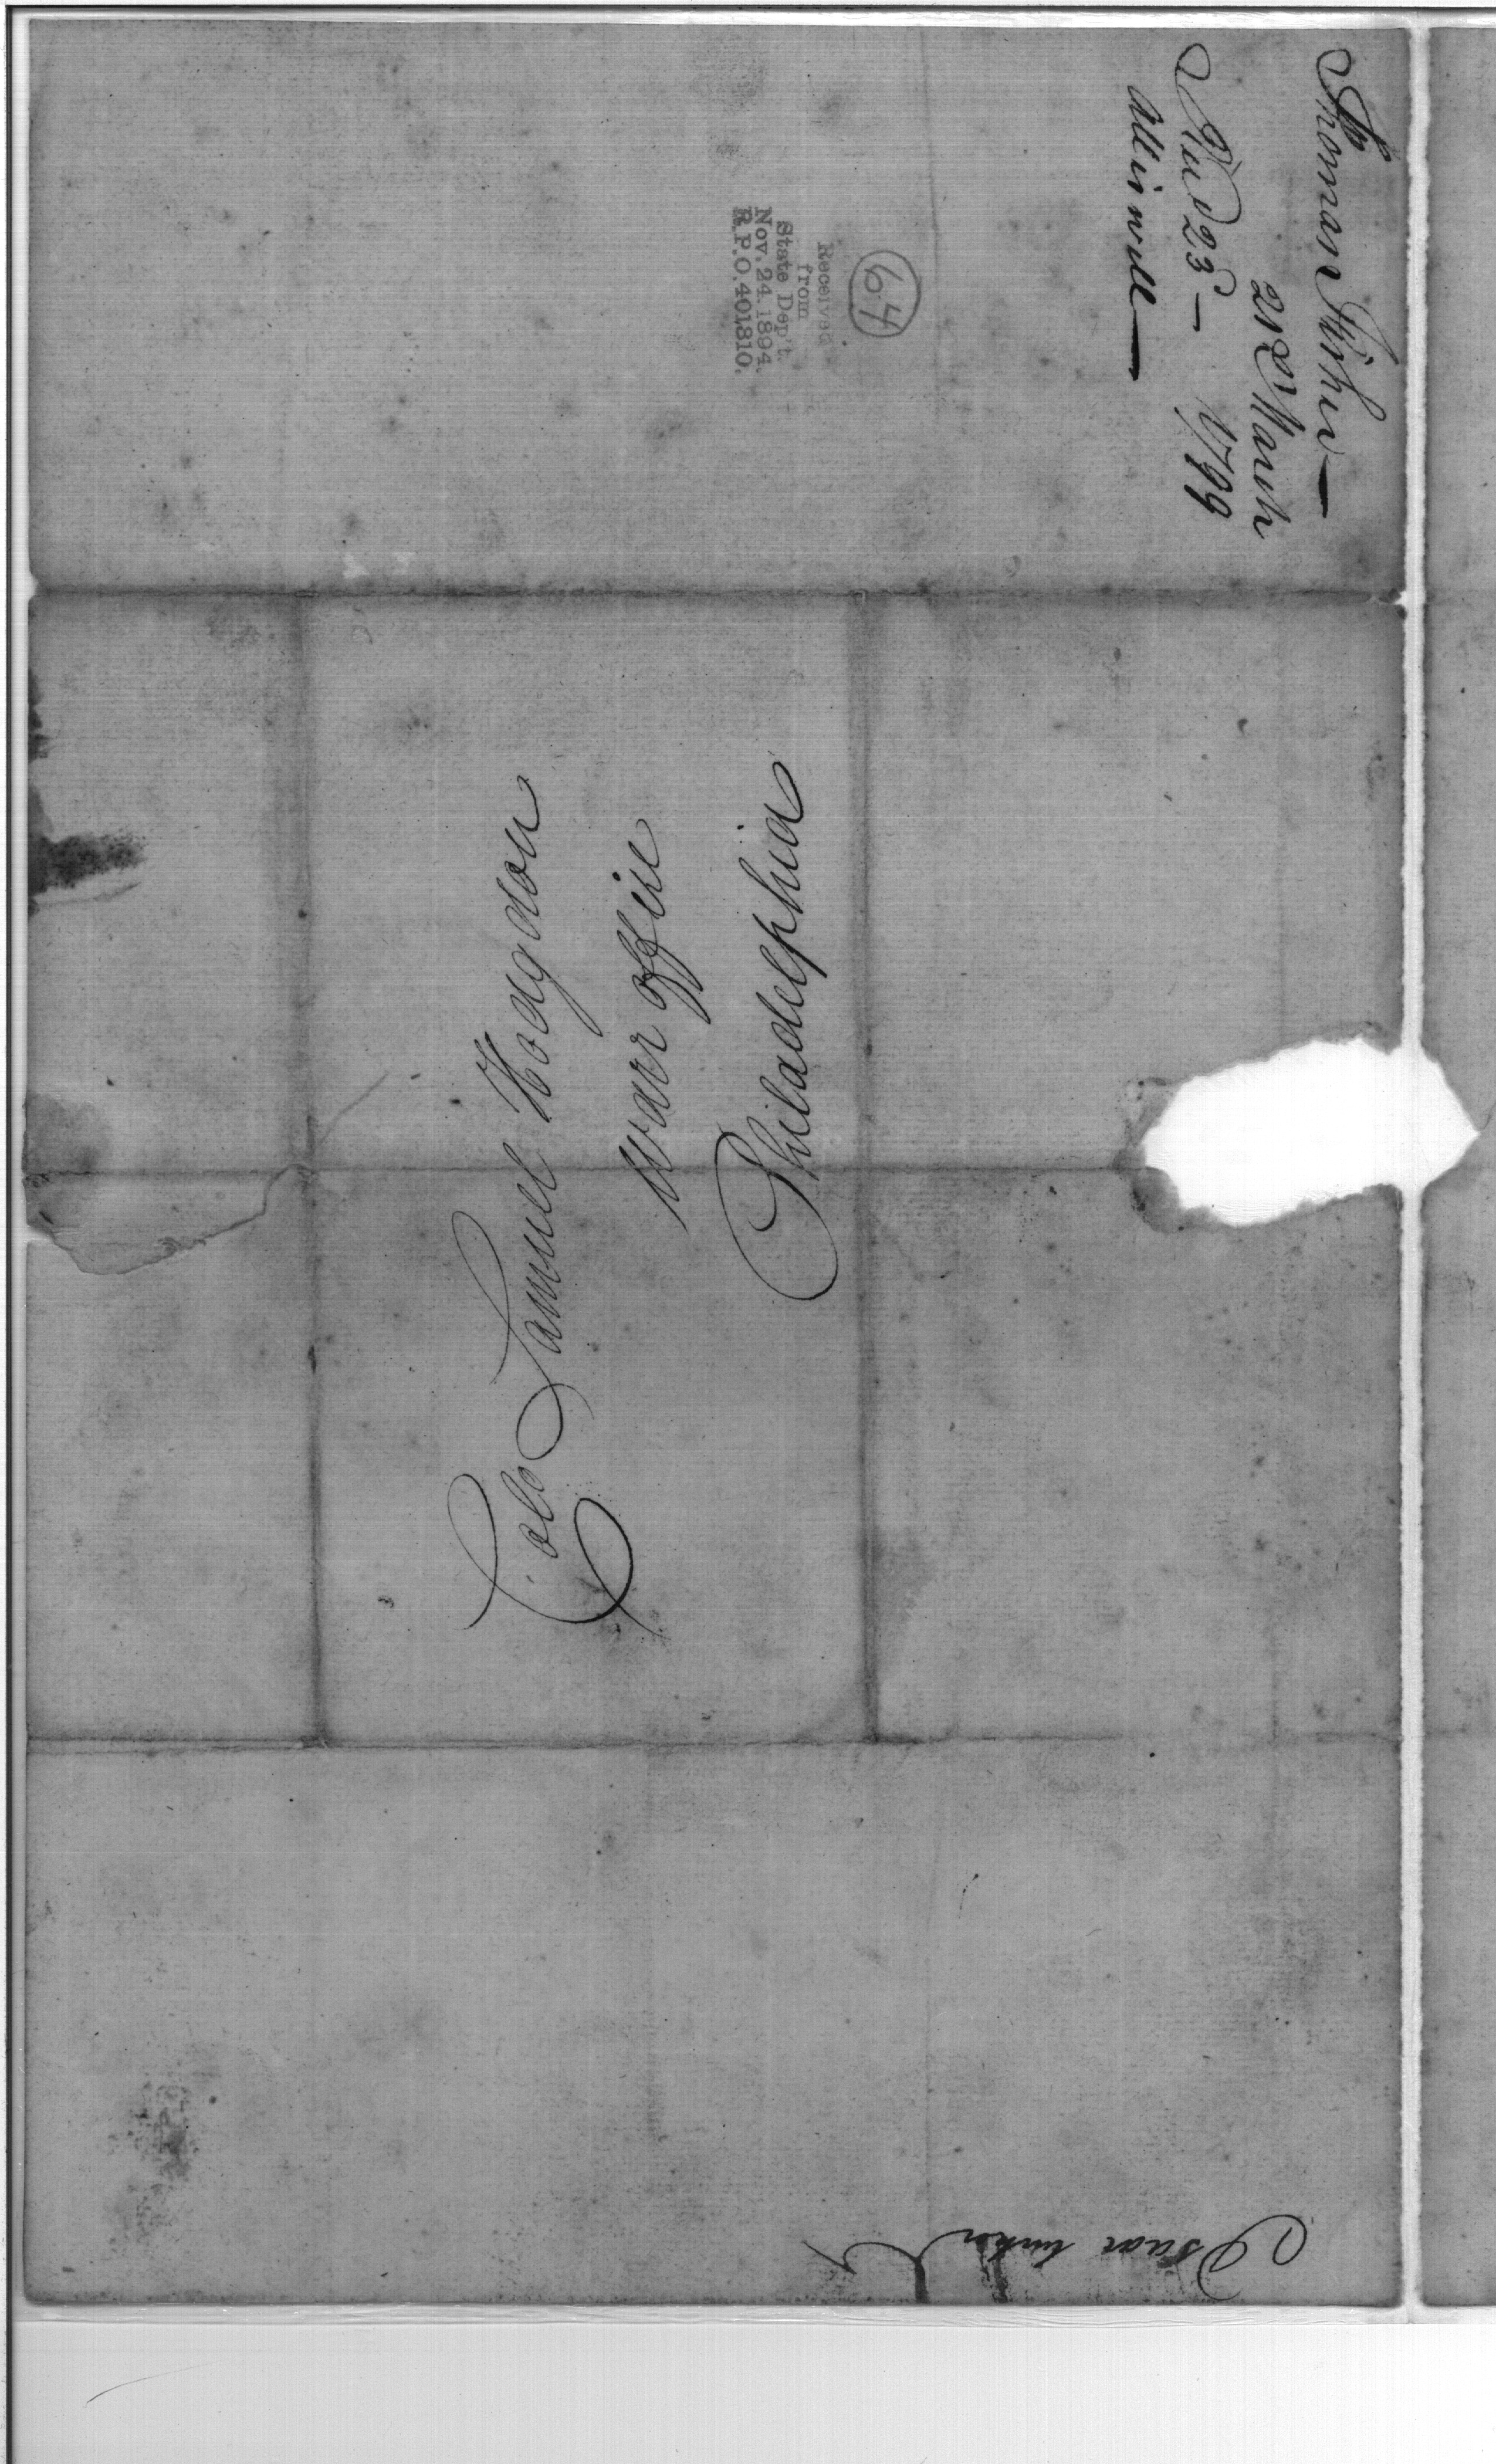 Thomas
21st March
Rec'd 23 – 1799
all is well —
64
Received
from
State Dep't.
Nov. 24. 1894.
R.P.O. 401310.
Colo Samuel Hodgdon
warr office
Philadelphia
Isaac